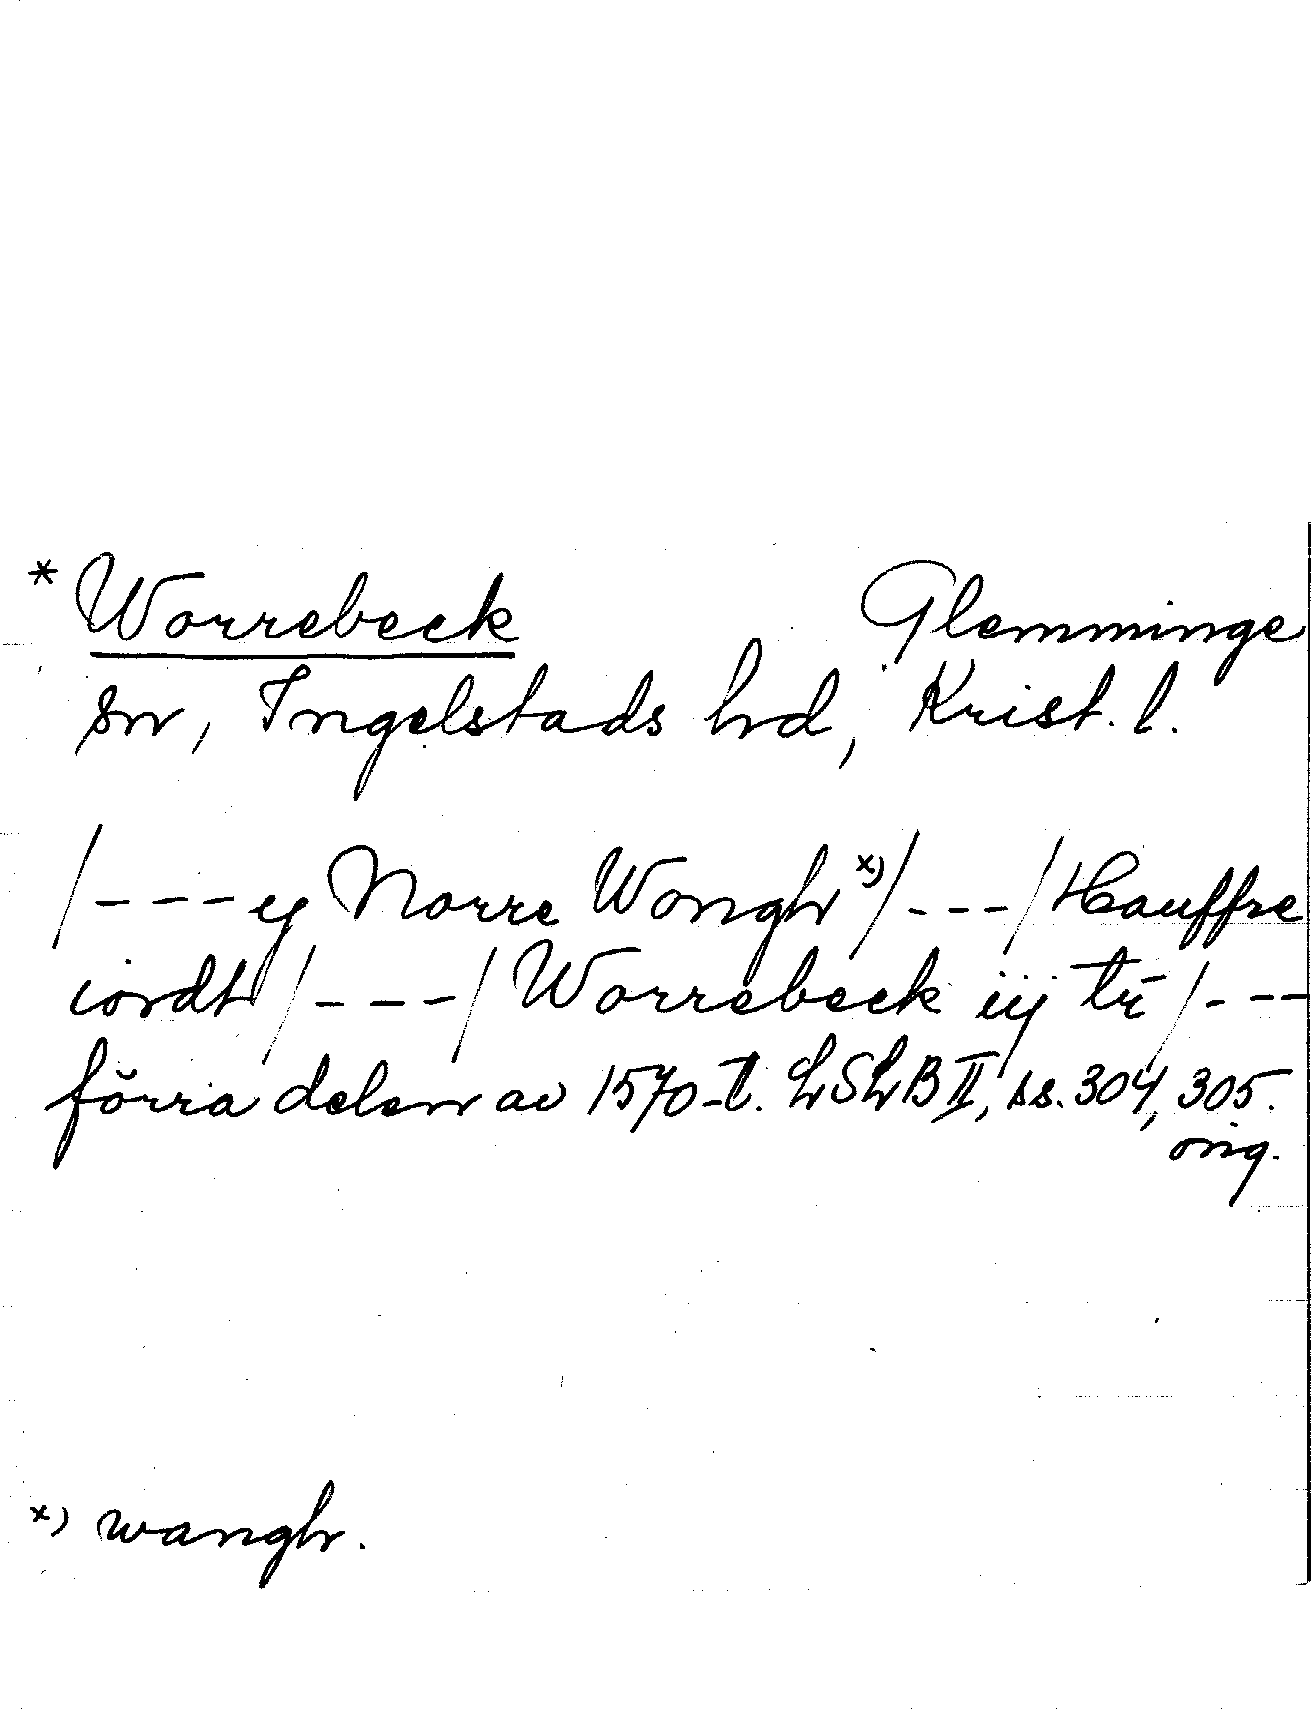 * Worrebeck Glemminge
sn, Ingelstads hd, Krist. l.
/--- ej Norre Wongh x) /---/ Hauffre
iordt /---/ Worrebeck iij tr̄ /---
förra delen av 1570-t. LSLB II, ss. 304, 305.
orig.
x) wangh.